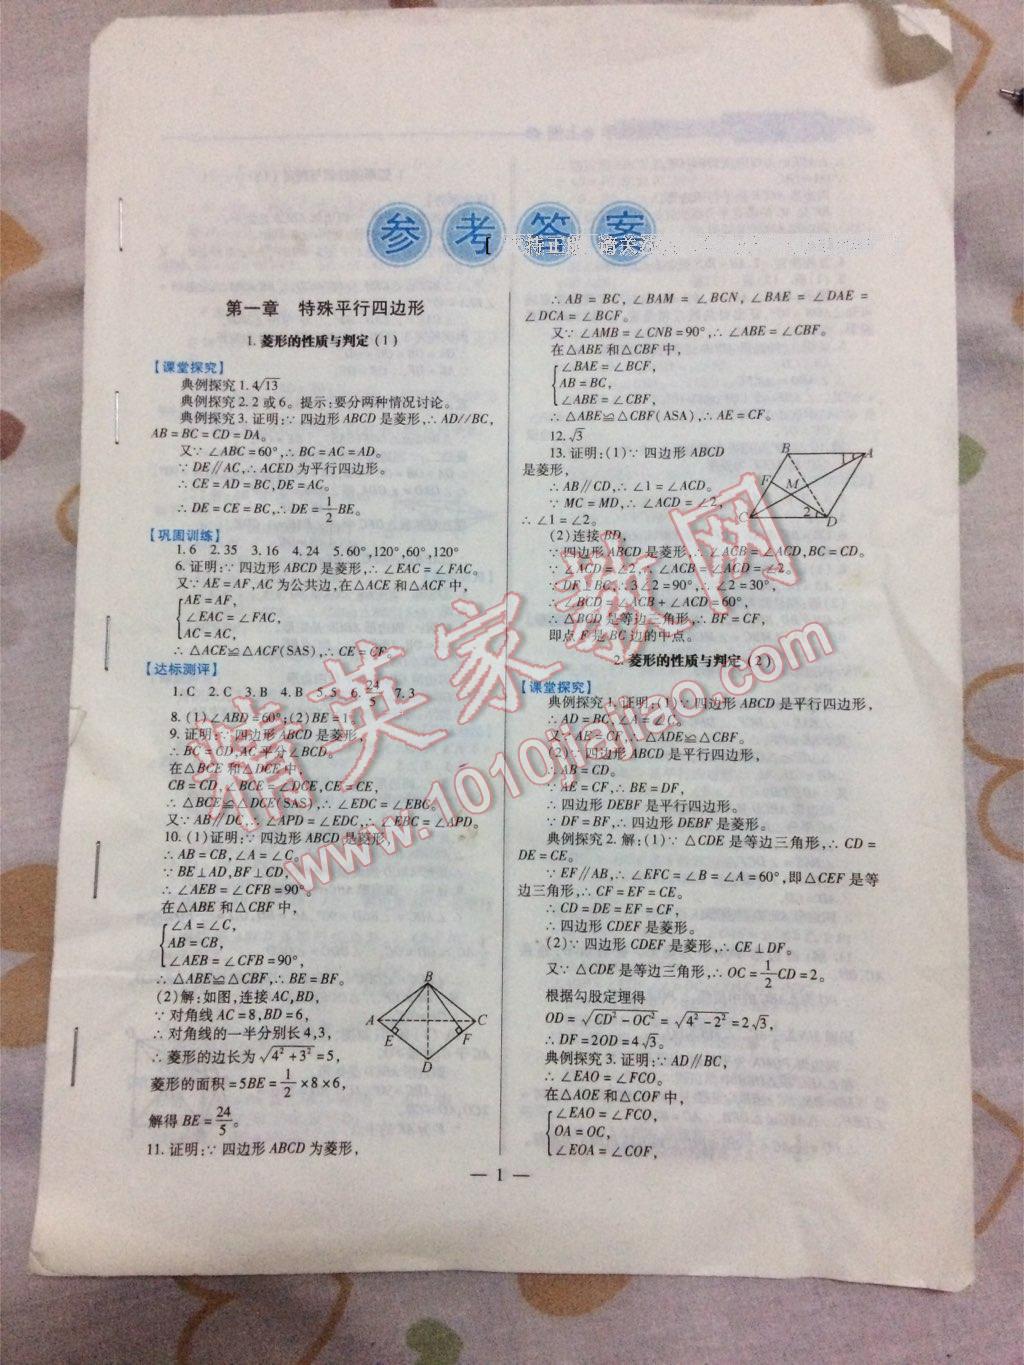 参考答案
第一章 特殊平行四边形
1. 菱形的性质与判定(1)
【课堂探究】
典例探究 1. 4√13
典例探究 2. 2 或 6。提示:要分两种情况讨论。
典例探究 3. 证明:∵ 四边形 ABCD 是菱形,∴ AD//BC,
AB = BC = CD = DA。
又∵ ∠ABC = 60°,∴ BC = AC = AD。
∵ DE∥AC,∴ ACED 为平行四边形。
∴ CE = AD = BC,DE = AC。
∴ DE = CE = BC,∴ DE = 1/2 BE。
【巩固训练】
1. 6 2. 35 3. 16 4. 24 5. 60°,120°,60°,120°
6. 证明:∵ 四边形 ABCD 是菱形,∴ ∠EAC = ∠FAC。
又∵ AE = AF,AC 为公共边,在△ACE 和△ACF 中,
AE = AF,
∠EAC = ∠FAC,
AC = AC,
∴ △ACE≌△ACF(SAS),∴ CE = CF。
【达标测评】
1. C 2. C 3. B 4. B 5. 5 6. 24/5 7. 3
8. (1)∠ABD = 60°;(2)BE = 1
9. 证明:∵ 四边形 ABCD 是菱形,
∴ BC = CD,AC 平分∠BCD。
在△BCE 和△DCE 中,
CB = CD,∠BCE = ∠DCE,CE = CE,
∴ △BCE≌△DCE(SAS),∴ ∠EDC = ∠EBC。
又∵ AB∥DC,∴ ∠APD = ∠EDC,∴ ∠EBC = ∠APD。
10. (1)证明:∵ 四边形 ABCD 是菱形,
∴ AB = CB,∠A = ∠C。
∵ BE⊥AD,BF⊥CD,
∴ ∠AEB = ∠CFB = 90°。
在△ABE 和△CBF 中,
∠A = ∠C,
AB = CB,
∠AEB = ∠CFB = 90°,
∴ △ABE≌△CBF,∴ BE = BF。
(2)解:如图,连接 AC,BD,
∵ 对角线 AC = 8,BD = 6,
∴ 对角线的一半分别长 4,3,
∴ 菱形的边长为 √(4² + 3²) = 5,
菱形的面积 = 5BE = 1/2 × 8 × 6,
解得 BE = 24/5。
B
A
C
E
F
D
11. 证明:∵ 四边形 ABCD 为菱形,
∴ AB = BC,∠BAM = ∠BCN,∠BAE = ∠DAE =
∠DCA = ∠BCF。
又∵ ∠AMB = ∠CNB = 90°,∴ ∠ABE = ∠CBF。
在△ABE 和△CBF 中,
∠BAE = ∠BCF,
AB = BC,
∠ABE = ∠CBF,
∴ △ABE≌△CBF(ASA),∴ AE = CF。
12. √3
13. 证明:(1)∵ 四边形 ABCD
是菱形,
∴ AB∥CD,∴ ∠1 = ∠ACD。
∵ MC = MD,∴ ∠ACD = ∠2,
∴ ∠1 = ∠2。
B
A
1
F
M
C
2
D
(2)连接 BD,
∵ 四边形 ABCD 是菱形,∴ ∠ACB = ∠ACD,BC = CD。
∵ ∠ACD = ∠2,∴ ∠ACB = ∠ACD = ∠2。
∵ DF⊥BC,∴ 3∠2 = 90°,∴ ∠2 = 30°,
∴ ∠BCD = ∠ACB + ∠ACD = 60°,
∴ △BCD 是等边三角形,∴ BF = CF,
即点 F 是 BC 边的中点。
2. 菱形的性质与判定(2)
【课堂探究】
典例探究 1. 证明:(1)∵ 四边形 ABCD 是平行四边形,
∴ AD = BC,∠A = ∠C。
又∵ AE = CF,∴ △ADE≌△CBF。
(2)∵ 四边形 ABCD 是平行四边形,
∴ AB = CD。
∵ AE = CF,∴ BE = DF,
∴ 四边形 DEBF 是平行四边形。
∵ DF = BF,∴ 四边形 DEBF 是菱形。
典例探究 2. 解:(1)∵ △CDE 是等边三角形,∴ CD =
DE = CE。
∵ EF∥AB,∴ ∠EFC = ∠B = ∠A = 60°,即△CEF 是等
边三角形,∴ CF = EF = CE。
∴ CD = DE = EF = CF,
∴ 四边形 CDEF 是菱形。
(2)∵ 四边形 CDEF 是菱形,∴ CE⊥DF。
又∵ △CDE 是等边三角形,∴ OC = 1/2 CD = 2。
根据勾股定理得
OD = √(CD² − OC²) = √(4² − 2²) = 2√3,
∴ DF = 2OD = 4√3。
典例探究 3. 证明:∵ AD∥BC,
∴ ∠EAO = ∠FCO。
在△AOE 和△COF 中,
∠EAO = ∠FCO,
OA = OC,
∠EOA = ∠COF,
— 1 —
精英家教网
www.1010jiajiao.com